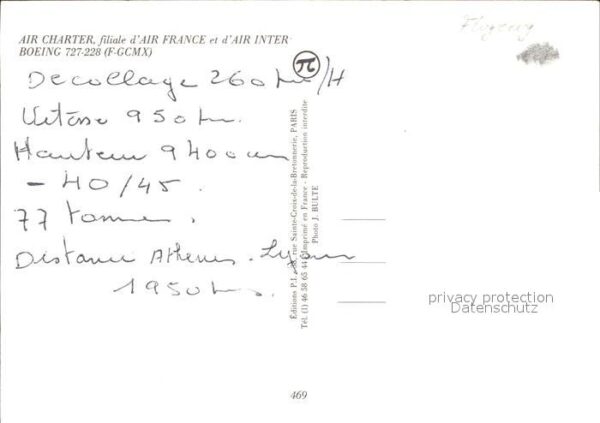 AIR CHARTER, filiale d'AIR FRANCE et d'AIR INTER
BOEING 727-228 (F-GCMX)
Flugzeug
Decollage 260 km/H
π
Vitesse 950 km.
Hauteur 9400 m
- 40/45.
77 tonnes.
Distance Athenes - Lyon
1950 km.
Éditions P.I., rue Sainte-Croix-de-la-Bretonnerie, PARIS
Tél. (1) 46 58 65 44 Imprimé en France - Reproduction interdite
Photo J. BULTE
privacy protection
Datenschutz
469